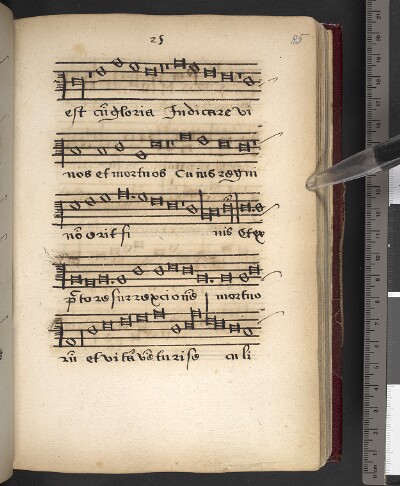 25 85
est cũ gloria Judicare vi
uos et mortuos Cuius regni
nõ erit fi nis Et ex
p̃to resurrexcionẽ mortuo
rũ et vitã vẽturi se cu li